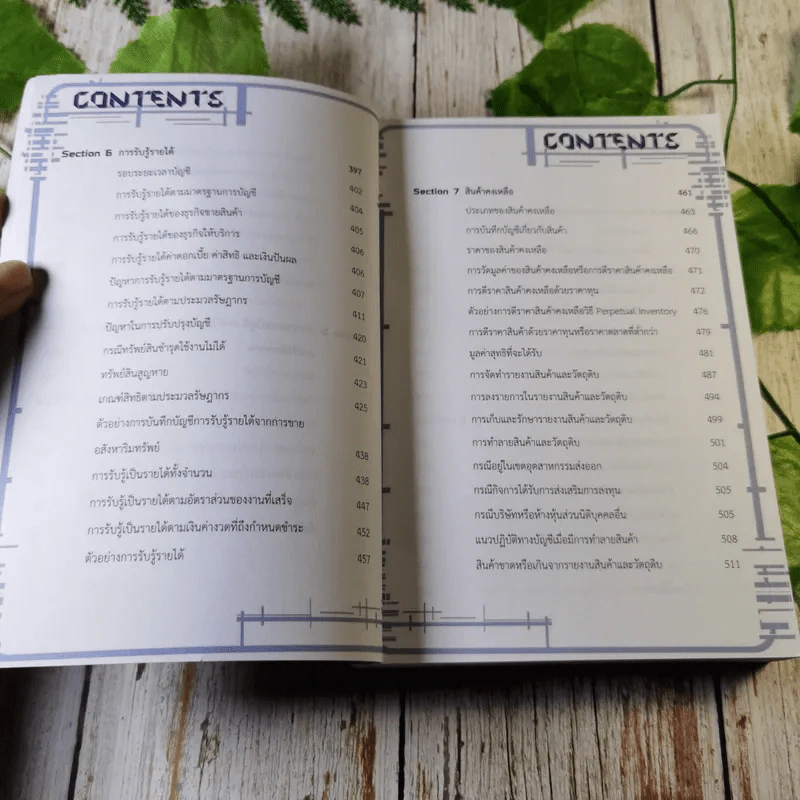 CONTENTS
Section 6 การรับรู้รายได้ 397
รอบระยะเวลาบัญชี 402
การรับรู้รายได้ตามมาตรฐานการบัญชี 404
การรับรู้รายได้ของธุรกิจขายสินค้า 405
การรับรู้รายได้ของธุรกิจให้บริการ 406
การรับรู้รายได้ค่าดอกเบี้ย ค่าสิทธิ และเงินปันผล 406
ปัญหาการรับรู้รายได้ตามมาตรฐานการบัญชี 407
การรับรู้รายได้ตามประมวลรัษฎากร 411
ปัญหาในการปรับปรุงบัญชี 420
กรณีทรัพย์สินชำรุดใช้งานไม่ได้ 421
ทรัพย์สินสูญหาย 423
เกณฑ์สิทธิตามประมวลรัษฎากร 425
ตัวอย่างการบันทึกบัญชีการรับรู้รายได้จากการขาย
อสังหาริมทรัพย์ 438
การรับรู้เป็นรายได้ทั้งจำนวน 438
การรับรู้เป็นรายได้ตามอัตราส่วนของงานที่เสร็จ 447
การรับรู้เป็นรายได้ตามเงินค่างวดที่ถึงกำหนดชำระ 452
ตัวอย่างการรับรู้รายได้ 457
CONTENTS
Section 7 สินค้าคงเหลือ 461
ประเภทของสินค้าคงเหลือ 463
การบันทึกบัญชีเกี่ยวกับสินค้า 466
ราคาของสินค้าคงเหลือ 470
การวัดมูลค่าของสินค้าคงเหลือหรือการตีราคาสินค้าคงเหลือ 471
การตีราคาสินค้าคงเหลือด้วยราคาทุน 472
ตัวอย่างการตีราคาสินค้าคงเหลือวิธี Perpetual Inventory 476
การตีราคาสินค้าด้วยราคาทุนหรือราคาตลาดที่ต่ำกว่า 479
มูลค่าสุทธิที่จะได้รับ 481
การจัดทำรายงานสินค้าและวัตถุดิบ 487
การลงรายการในรายงานสินค้าและวัตถุดิบ 494
การเก็บและรักษารายงานสินค้าและวัตถุดิบ 499
การทำลายสินค้าและวัตถุดิบ 501
กรณีอยู่ในเขตอุตสาหกรรมส่งออก 504
กรณีกิจการได้รับการส่งเสริมการลงทุน 505
กรณีบริษัทหรือห้างหุ้นส่วนนิติบุคคลอื่น 505
แนวปฏิบัติทางบัญชีเมื่อมีการทำลายสินค้า 508
สินค้าขาดหรือเกินจากรายงานสินค้าและวัตถุดิบ 511